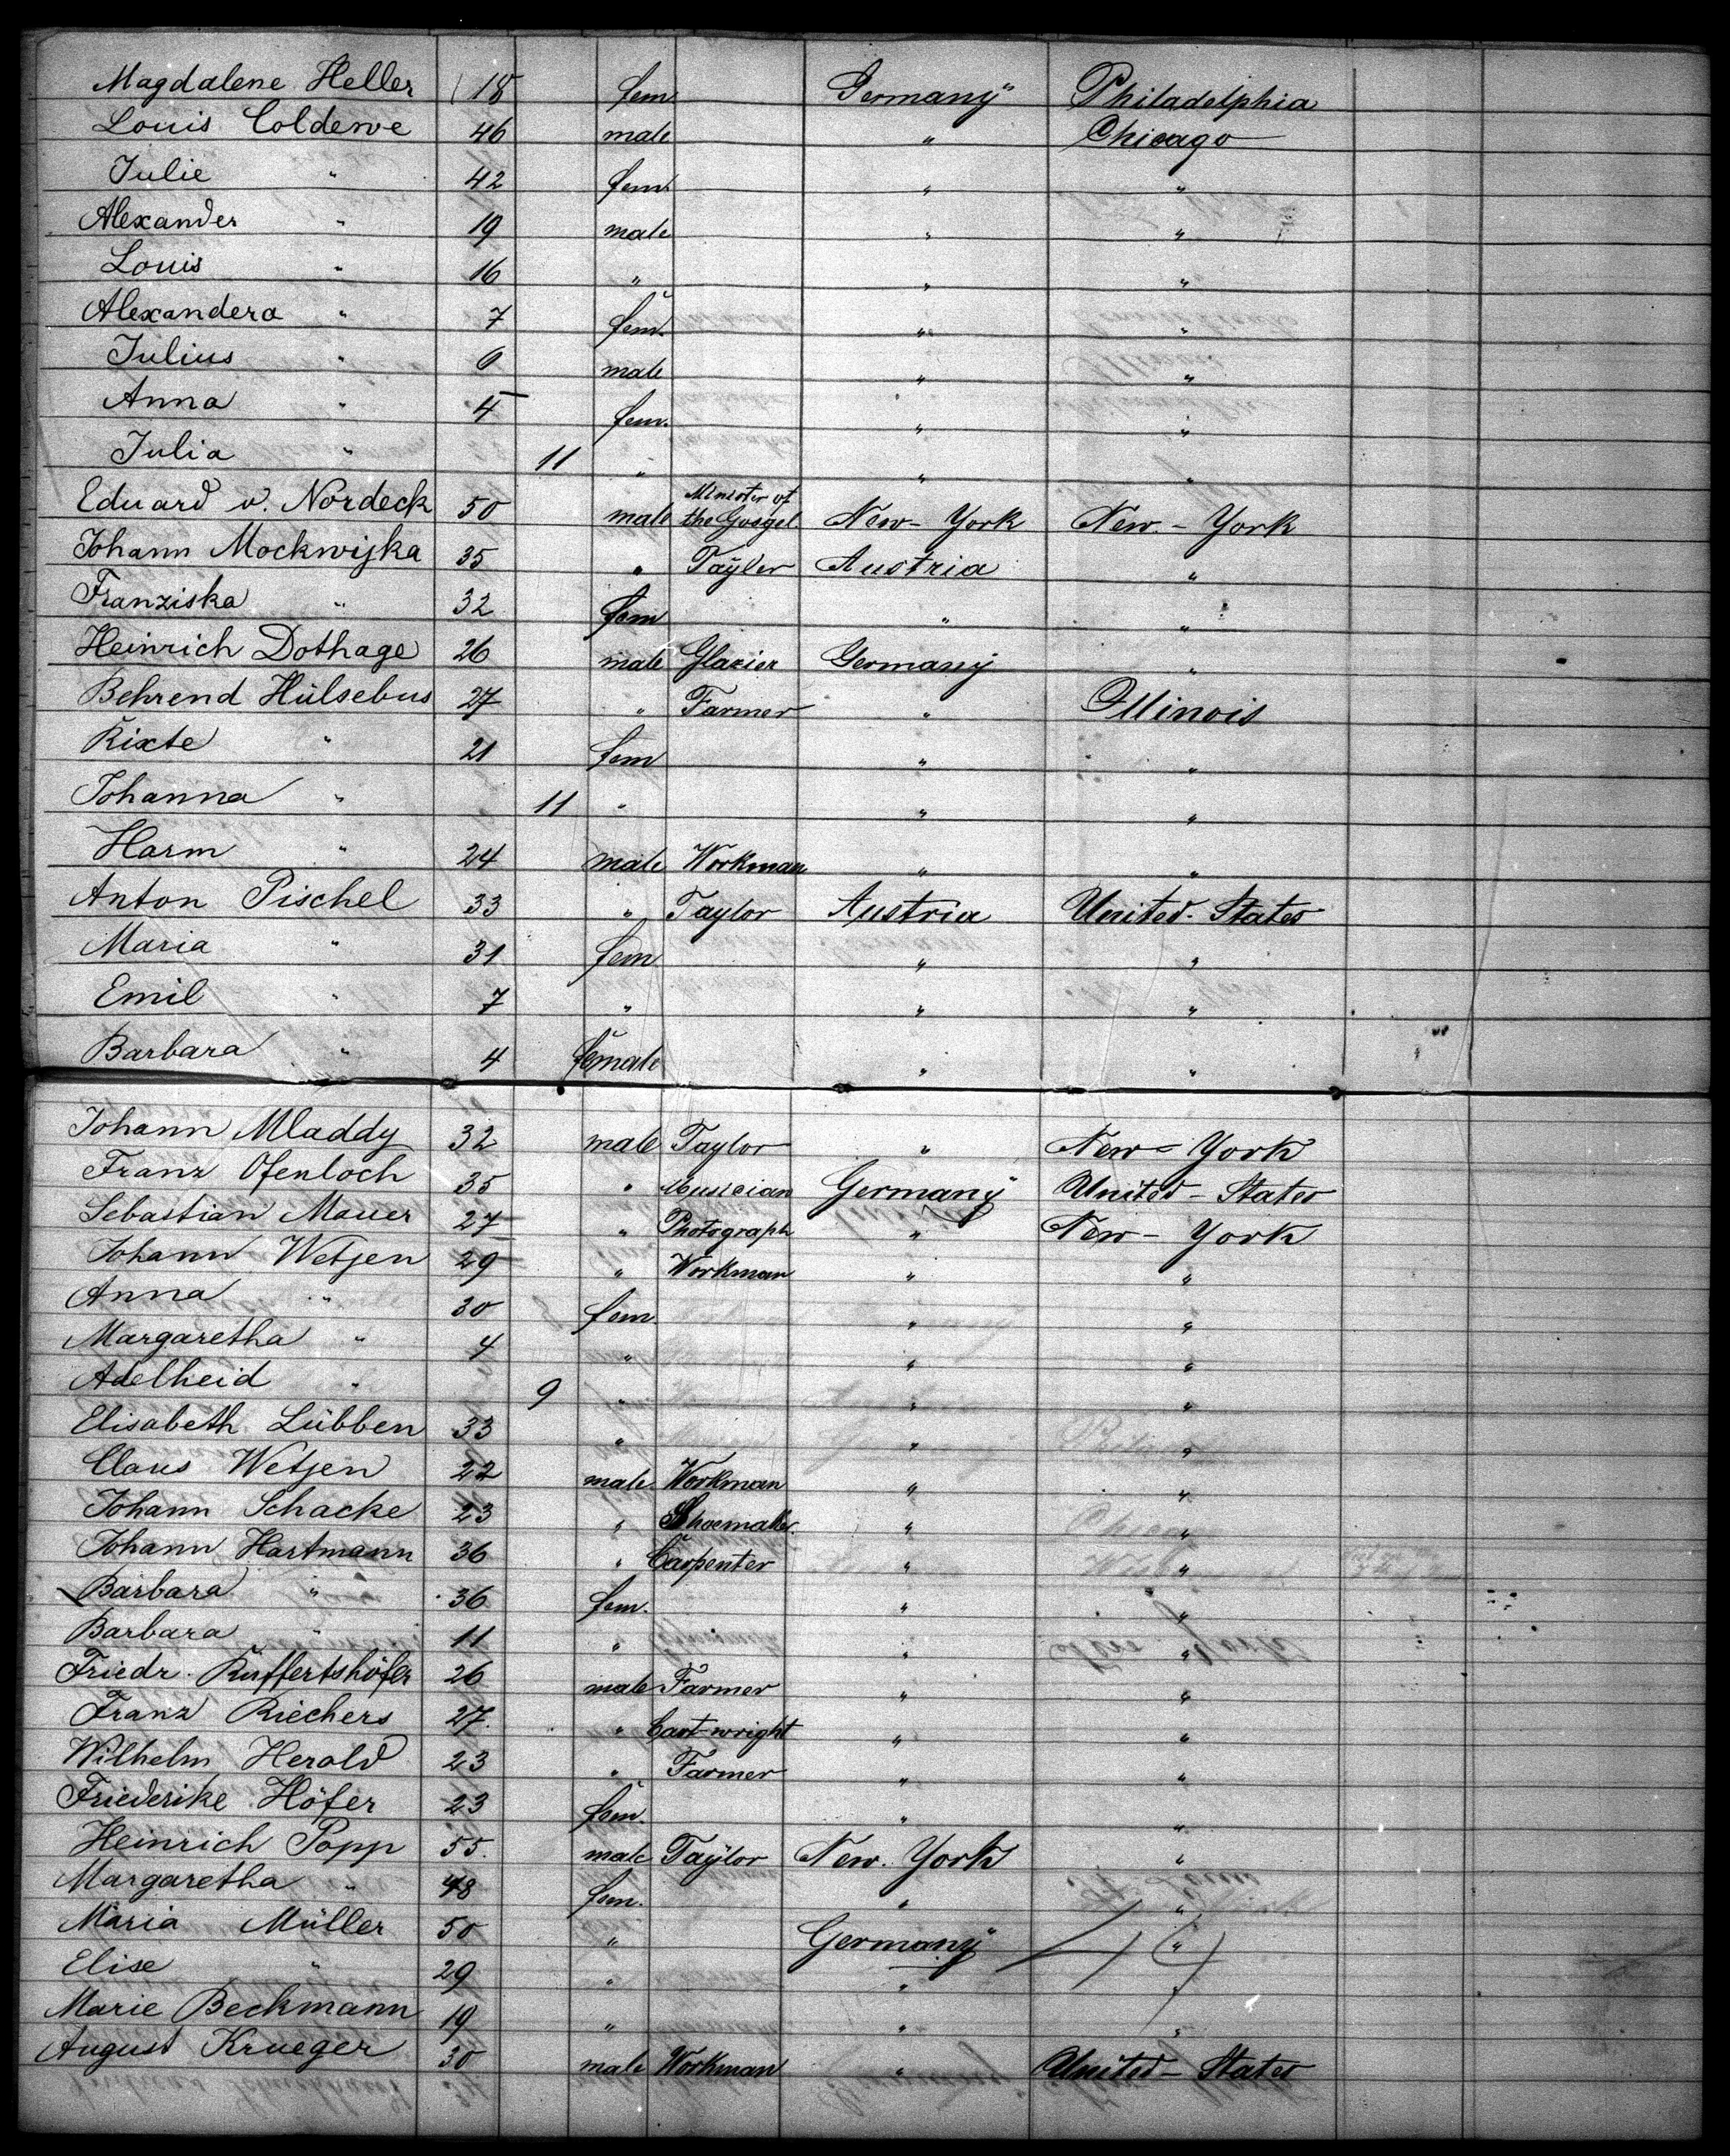 Magdalene Heller 18 fem Germany Philadelphia
Louis Colderve 46 male " Chicago
Julie " 42 fem. " "
Alexander " 19 male " "
Louis " 16 " " "
Alexandera " 7 fem. " "
Julius " 6 male " "
Anna " 4 fem. " "
Julia " 11 " " "
Eduard v. Nordeck 50 male Minister of the Gospel New-York New-York
Johann Mockwijka 35 " Tayler Austria "
Franziska " 32 fem " "
Heinrich Dothage 26 male Glazier Germany "
Behrend Hülsebus 27 " Farmer " Illinois
Rixte " 21 fem " "
Johanna " 11 " " "
Harm " 24 male Workman " "
Anton Pischel 33 " Taylor Austria United-States
Maria " 31 fem " "
Emil " 7 " " "
Barbara " 4 female " "
Johann Mladdy 32 male Taylor " New-York
Franz Ofenloch 35 " Musician Germany United-States
Sebastian Mauer 27 " Photograph " New-York
Johann Wetjen 29 " Workman " "
Anna " 30 fem " "
Margaretha " 4 " " "
Adelheid " 9 " " "
Elisabeth Lübben 33 " " "
Claus Wetjen 22 male Workman " "
Johann Schacke 23 " Shoemaker. " "
Johann Hartmann 36 " Carpenter " "
Barbara " 36 fem. " "
Barbara " 11 " " "
Friedr. Ruffertshöfer 26 male Farmer " "
Franz Riechers 27. " Cart-wright " "
Wilhelm Herold 23 " Farmer " "
Friederike Höfer 23 fem. " "
Heinrich Popp 55. male Taylor New-York "
Margaretha " 48 fem. " "
Maria Müller 50 " Germany "
Elise " 29 " " "
Marie Beckmann 19 " " "
August Krueger 30 male Workman " United-States